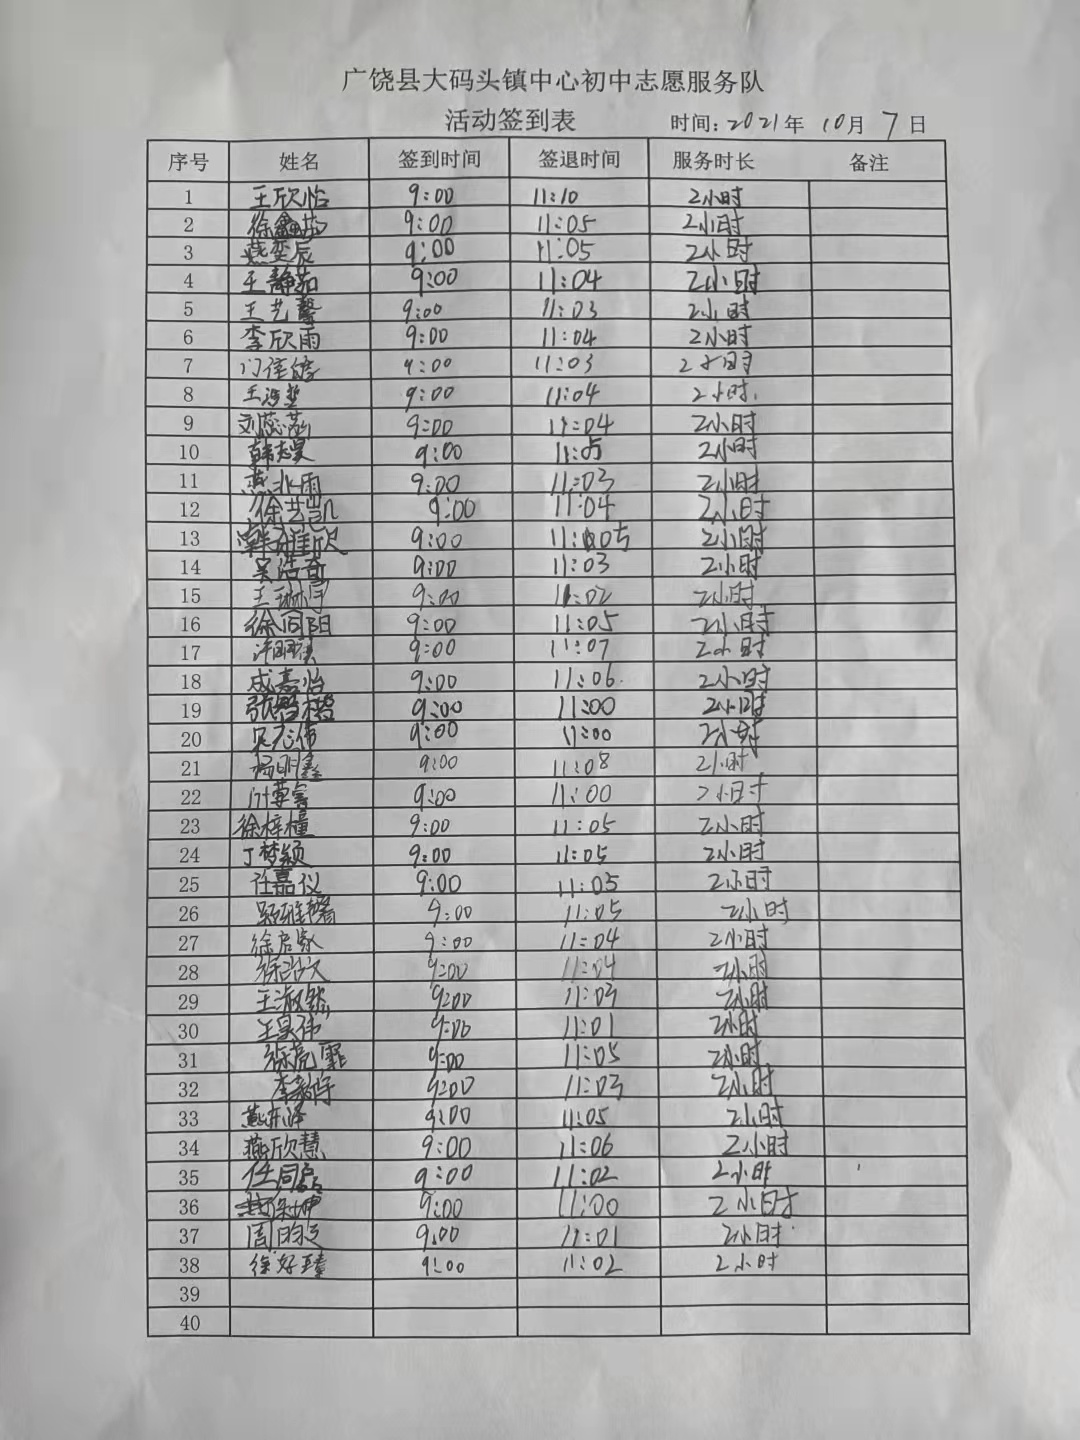 广饶县大码头镇中心初中志愿服务队
活动签到表 时间:2021年 10月 7日
序号 姓名 签到时间 签退时间 服务时长 备注
1 王欣怡 9:00 11:10 2小时
2 徐鑫 9:00 11:05 2小时
3 燕奕辰 9:00 11:05 2小时
4 王静茹 9:00 11:04 2小时
5 王艺馨 9:00 11:03 2小时
6 李欣雨 9:00 11:04 2小时
7 9:00 11:03 2小时
8 王 9:00 11:04 2小时
9 刘蕊 9:00 11:04 2小时
10 韩志昊 9:00 11:05 2小时
11 燕兆雨 9:00 11:03 2小时
12 徐艺凯 9:00 11:04 2小时
13 9:00 11:05 2小时
14 吴浩奇 9:00 11:03 2小时
15 王琳宇 9:00 11:02 2小时
16 徐向阳 9:00 11:05 2小时
17 9:00 11:07 2小时
18 成嘉怡 9:00 11:06 2小时
19 张 9:00 11:00 2小时
20 9:00 11:00 2小时
21 杨明鑫 9:00 11:08 2小时
22 9:00 11:00 2小时
23 徐梓橦 9:00 11:05 2小时
24 丁梦颖 9:00 11:05 2小时
25 任嘉仪 9:00 11:05 2小时
26 9:00 11:05 2小时
27 徐启家 9:00 11:04 2小时
28 徐浩文 9:00 11:04 2小时
29 王淑 9:00 11:03 2小时
30 王昊伟 9:00 11:01 2小时
31 9:00 11:05 2小时
32 李 9:00 11:03 2小时
33 9:00 11:05 2小时
34 燕欣慧 9:00 11:06 2小时
35 任同磊 9:00 11:02 2小时
36 9:00 11:00 2小时
37 周 9:00 11:01 2小时
38 徐好臻 9:00 11:02 2小时
39
40